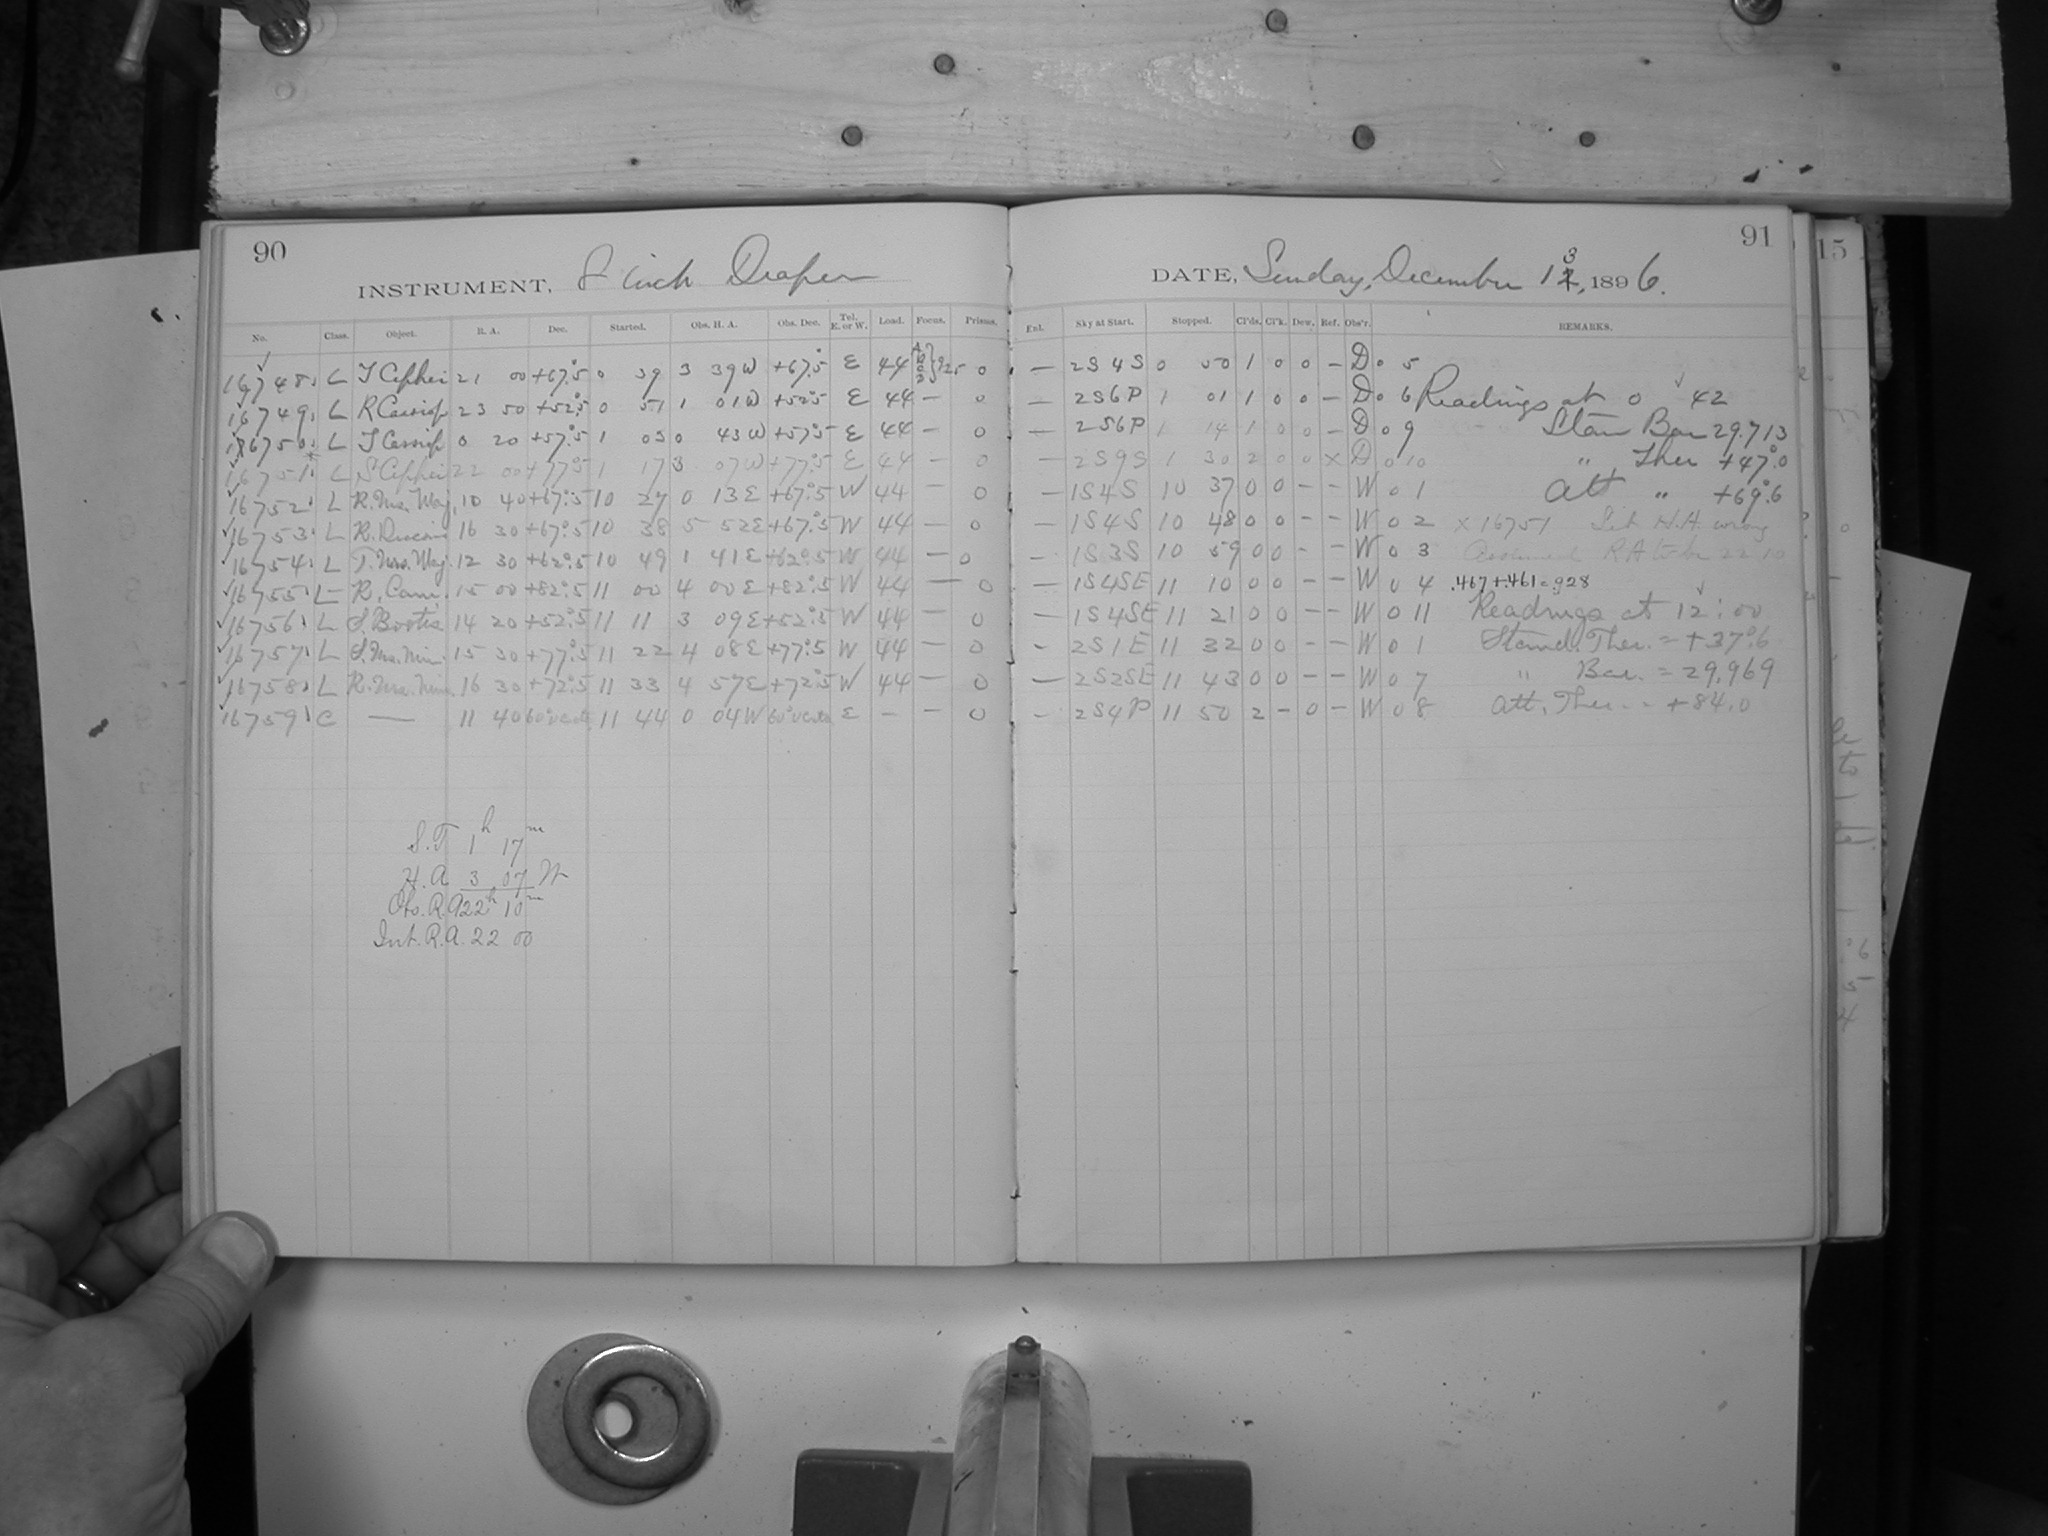 90
INSTRUMENT, 8 inch Draper
No. Class. Object. R. A. Dec. Started. Obs. H. A. Obs. Dec. Tel. E. or W. Load. Focus. Prisms.
16748 L T Cephei 21 00 +67°.5 0 39 3 39 W +67°.5 E 44 925 0
16749 L R Cassiop 23 50 +52°.5 0 51 1 01 W +52°.5 E 44 — 0
16750 L T Cassiop 0 20 +57°.5 1 03 0 43 W +57°.5 E 44 — 0
16751 L S Cephei 22 00 +77°.5 1 17 3 07 W +77°.5 E 44 — 0
16752 L R. Urs. Maj. 10 40 +67°.5 10 27 0 13 E +67°.5 W 44 — 0
16753 L R. Draconis 16 30 +67°.5 10 38 5 52 E +67°.5 W 44 — 0
16754 L T. Urs. Maj. 12 30 +62°.5 10 49 1 41 E +62°.5 W 44 — 0
16755 L R. Cam. 15 00 +82°.5 11 00 4 00 E +82°.5 W 44 — 0
16756 L S. Bootis 14 20 +52°.5 11 11 3 09 E +52°.5 W 44 — 0
16757 L S. Urs. Min. 15 30 +77°.5 11 22 4 08 E +77°.5 W 44 — 0
16758 L R. Urs. Min. 16 30 +72°.5 11 33 4 57 E +72°.5 W 44 — 0
16759 C — 11 40 11 44 0 04 W E — — 0
S.T 1h 17m
H.A 3 07 W
Obs. R.A 22h 10m
Int. R.A. 22 00
91
DATE, Sunday, December 13, 1896.
Enl. Sky at Start. Stopped. Cl'ds. Cl'k. Dew. Ref. Obs'r. REMARKS.
— 2S4S 0 50 1 0 0 — D 0 5
— 2S6P 1 01 1 0 0 — D 0 6 Readings at 0 42
— 2S6P 1 14 1 0 0 — D 0 9 Stan Bar 29.713
— 2S9S 1 30 2 0 0 x D 0 10 " Ther +47°.0
— 1S4S 10 37 0 0 — — W 0 1 Att " +69°.6
— 1S4S 10 48 0 0 — — W 0 2 x 16751 Set H.A. wrong
— 1S3S 10 59 0 0 — — W 0 3 Assumed R A to be 22 10
— 1S4SE 11 10 0 0 — — W 0 4 .467+.461=.928
— 1S4SE 11 21 0 0 — — W 0 11 Readings at 12:00
— 2S1E 11 32 0 0 — — W 0 1 Stand. Ther. = +37°.6
— 2S2SE 11 43 0 0 — — W 0 7 " Bar. = 29.969
— 2S4P 11 50 2 — 0 — W 0 8 Att. Ther. = +84.0
15